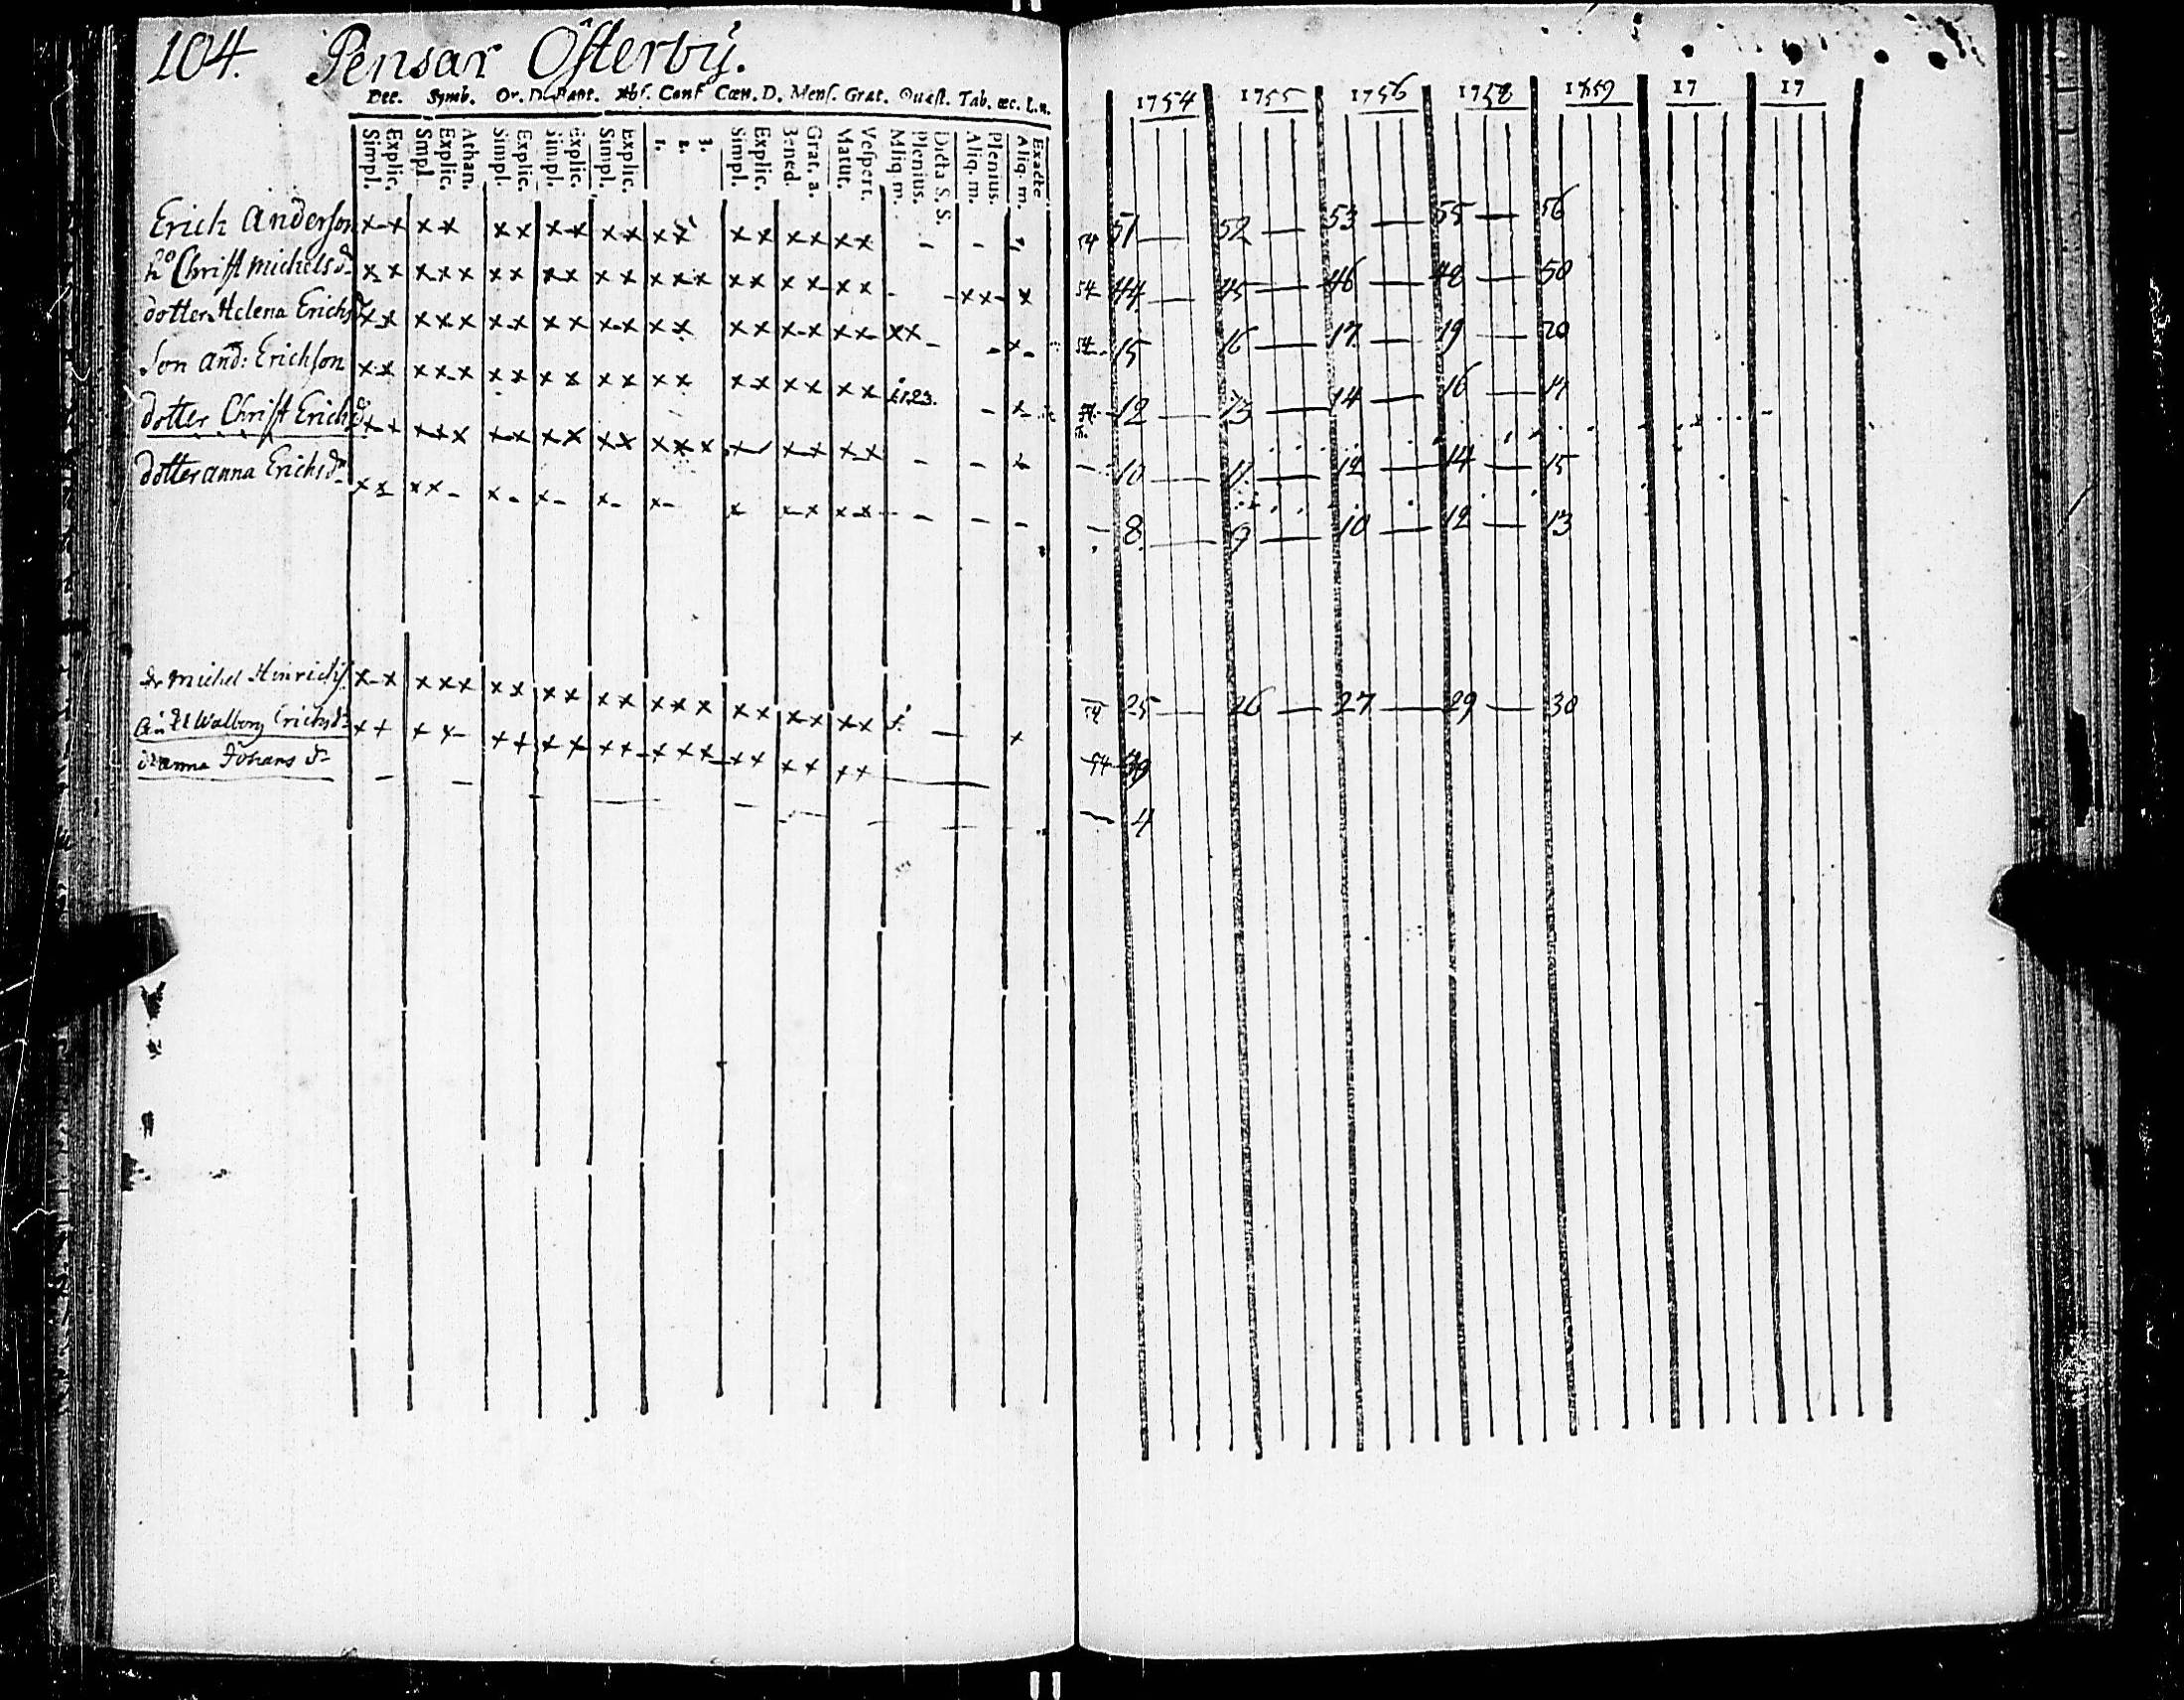 104. Pensar Österby.
Dec. Symb. Or. D. Bapt. Abs. Conf Cœn. D. Mens. Grat. Quæst. Tab. œc. L.n.
Simpl. Explic. Simpl Explic. Athan. Simpl. Explic. Simpl. Explic. Simpl. Explic. 1. 2. 3. Simpl. Explic. Bened. Grat. a. Matut. Vespert. Aliq m. Plenius. Dicta S. S. Aliq. m. Plenius. Aliq. m. Exacte
1754 1755 1756 1758 1759 17 17
Erich Anderson x x x x x x x x x x x x x x x x x x - - - 54 51 — 52 — 53 — 55 — 56
ho Christ Michelsdr x x x x x x x x x x x x x x x x x x x - - x x - x 54 44 — 45 — 46 — 48 — 50
dotter Helena Erichsdr x x x x x x x x x x x x x x x x x x x x x - - x - 54 15 16 — 17 — 19 — 20
Son And: Erichson x x x x x x x x x x x x x x x x x x x 1.23. - x - 12 — 13 — 14 — 16 —
dotter Christ Erichsdr x x x x x x x x x x x x x x x x x x x x - - x - 10 11 — 12 — 14 — 15
dotter Anna Erichsdr x x x x - x - x - x - x - x x x x x - - - - 8 — 9 — 10 — 12 — 13
dr Michel Hinrichs x x x x x x x x x x x x x x x x x x x x — x 54 25 — 26 — 27 — 29 — 30
Walborg Erichsdr x x x x - x x x x x x x x x x x x x x x — 54 39
Anna Johansdr - - - — - - - - — 4